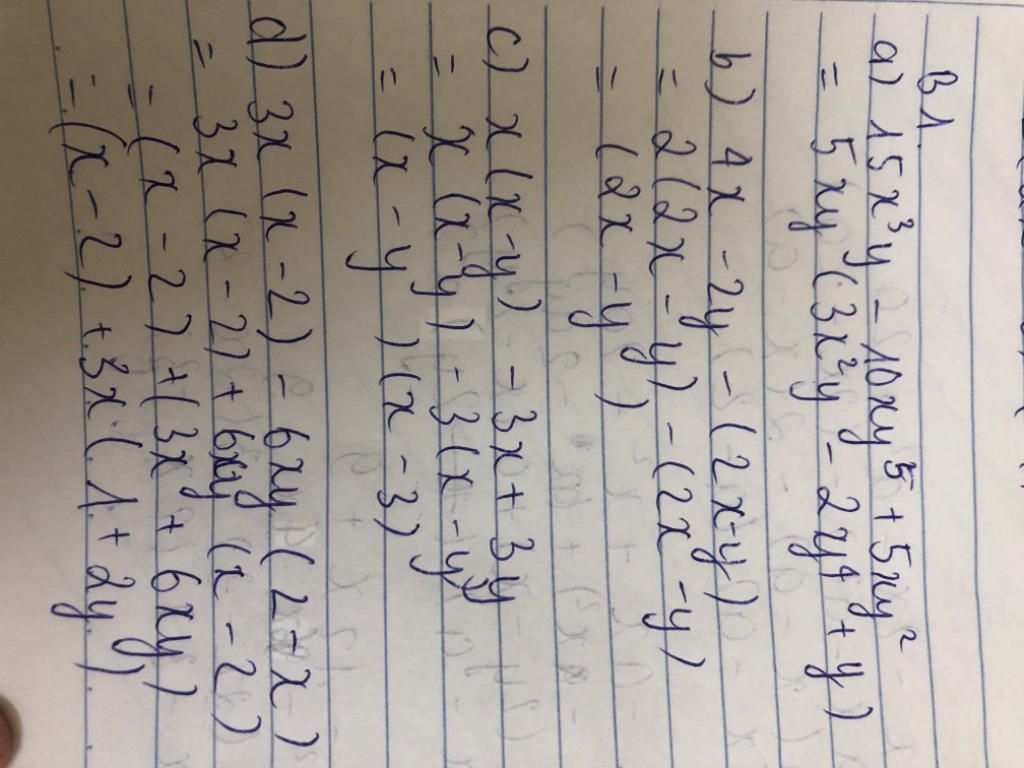 B1.
a) 15x³y - 10xy⁵ + 5xy²
= 5xy (3x²y - 2y⁴ + y)
b) 4x - 2y - (2x-y)
= 2(2x - y) - (2x - y)
= (2x - y)
c) x(x-y) - 3x + 3y
= x(x-y) - 3(x-y)
= (x - y)(x - 3)
d) 3x(x-2) - 6xy(2-x)
= 3x(x-2) + 6xy(x-2)
= (x-2) + (3x + 6xy)
= (x-2) + 3x.(1+2y)